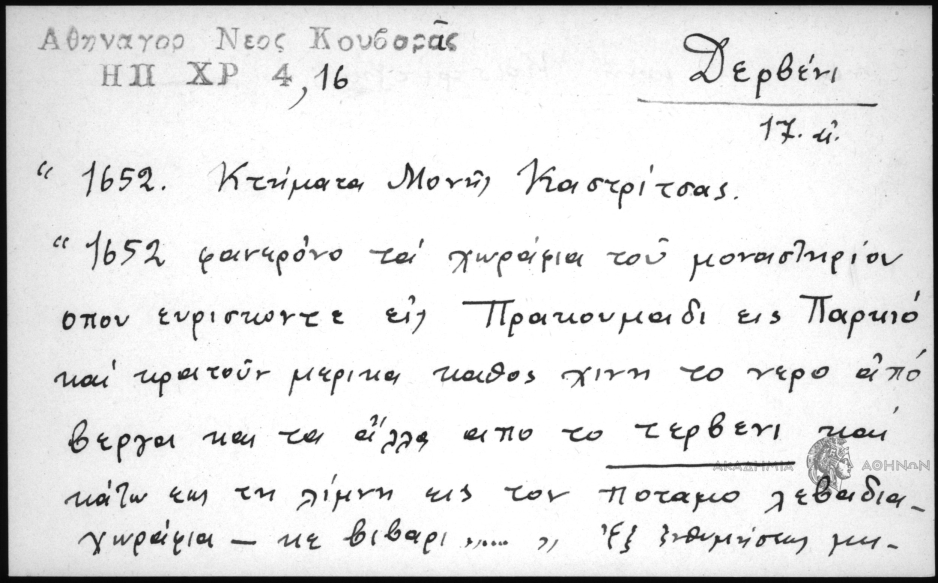 Αθηναγορ Νεος Κουβαρᾶς
ΗΠ ΧΡ 4, 16
Δερβένι
17. αἰ.
“ 1652. Κτήματα Μονῆς Καστρίτσας.
“ 1652 φανερόνο τά χωράφια τοῦ μοναστηρίου
οπου ευρισκοντε εἰς Πρακουμαδι εις Παρκιό
καί κρατοῦν μερικα καθος χινη το νερο ἀπό
βεργα και τα ἄλλα απο το τερβενι καί
ΑΚΑΔΗΜΙΑ ΑΘΗΝΩΝ
κάτω εως τη λίμνη εις τον ποταμο λεβαδια_
χωράφια — κε βιβαρι ...... „ Ἐξ ἐνθυμήσεως μι-